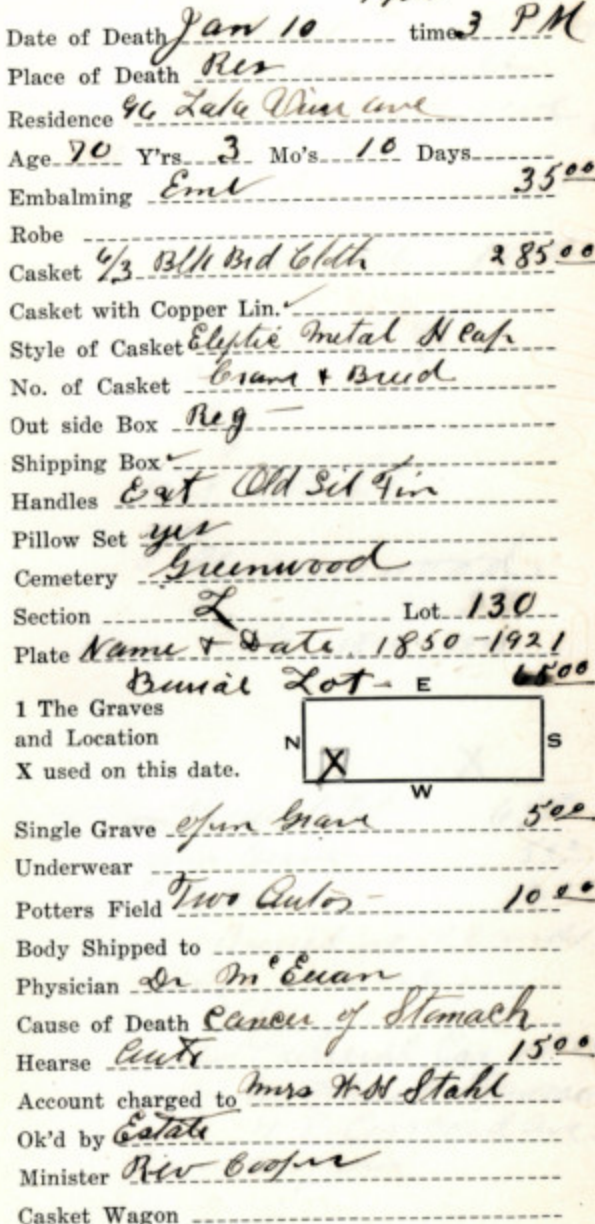 Date of Death Jan 10 time 3 PM
Place of Death Res
Residence 96 Lake View ave
Age 70 Y'rs 3 Mo's 10 Days
Embalming Eml 35 00
Robe
Casket 6/3 Blk Brd Cloth 285 00
Casket with Copper Lin.
Style of Casket Eleptic Metal H Cap
No. of Casket Crane + Breed
Out side Box Reg
Shipping Box
Handles Ext Old Sil Fin
Pillow Set yes
Cemetery Greenwood
Section L Lot 130
Plate Name + Date 1850-1921
Burial Lot - 65 00
E
1 The Graves
and Location
X used on this date.
N X S
W
Single Grave open Grave 5 00
Underwear
Potters Field Two Autos - 10 00
Body Shipped to
Physician Dr McEuan
Cause of Death Cancer of Stomach
Hearse Auto 15 00
Account charged to Mrs W H Stahl
Ok'd by Estate
Minister Rev Cooper
Casket Wagon